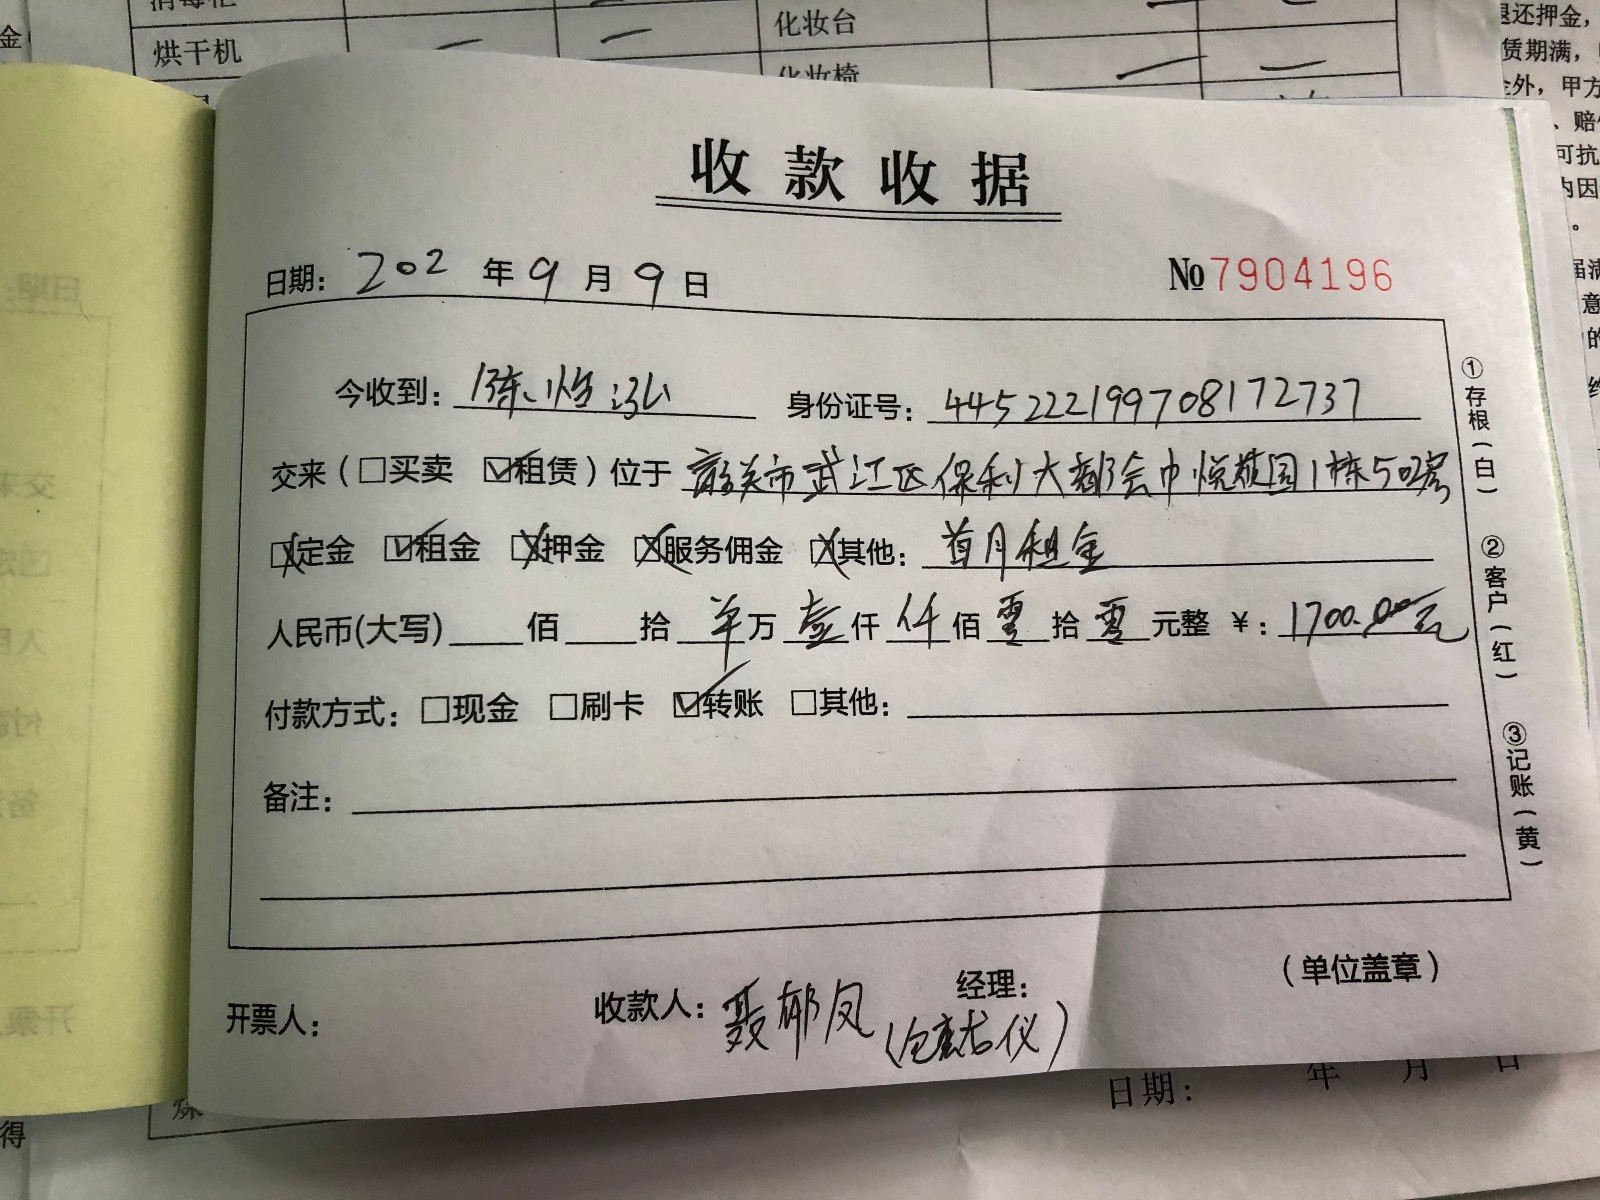 化妆台
烘干机
化妆椅
退还押金，
赁期满，
外，甲方
、赔
可抗
内因
收款收据
日期： 202 年 9 月 9 日
№7904196
今收到： 身份证号：445222199708172737
交来（□买卖 ☑租赁）位于 韶关市武江区保利大都会中悦花园1栋502房
☒定金 ☑租金 ☒押金 ☒服务佣金 ☒其他：首月租金
人民币(大写) 佰 拾 万 壹仟 佰 零拾 零元整 ￥：1700.00元
付款方式：□现金 □刷卡 ☑转账 □其他：
备注：
①存根（白） ②客户（红） ③记账（黄）
（单位盖章）
开票人： 收款人：聂郁凤 经理：
日期： 年 月 日